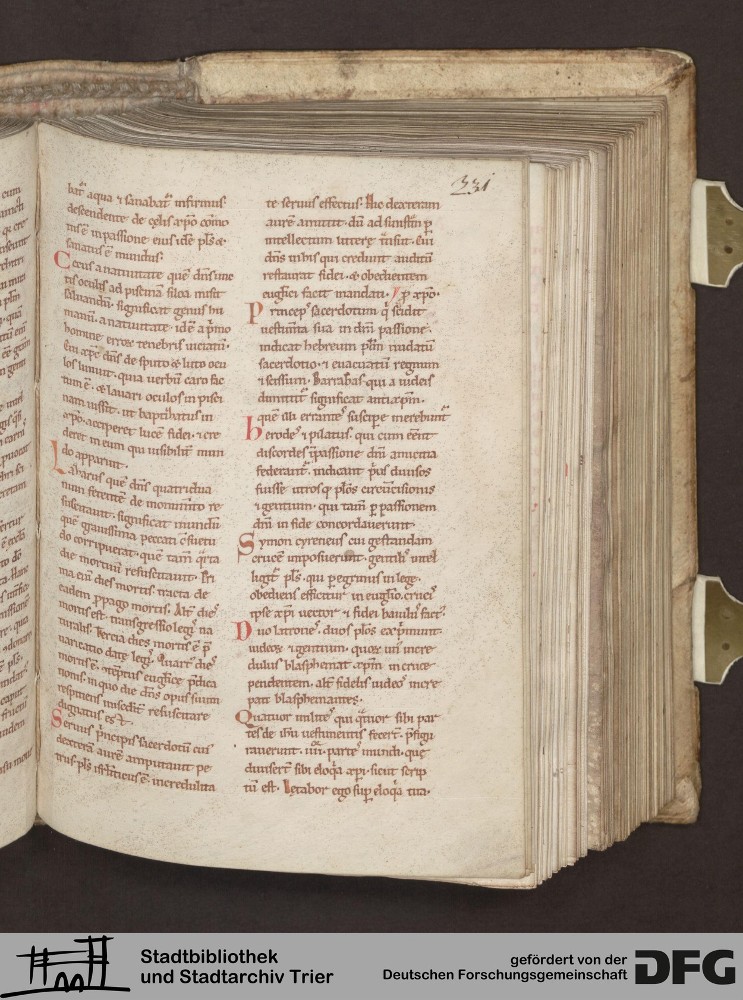 331
bat᷑ aqua ⁊ sanabat᷑ infirmus
descendente de cęlis xp̄o com̄o
tus ē in passione eius idē pl̄s ⁊
sanatus ē mundus.
Cecus a natiuitate quē dn̄s une
tis oculis ad piscinā siloa misit
saluandū. significat genus hu
manū. a natiuitate idē a p̓mo
homine erroꝝ tenebris uiciatū.
Cui xp̄c dn̄s de sputo ⁊ luto ocu
los liniuit. quia uerbū caro fac
tum ē. ⁊ lauari oculos in pisci
nam iussit. ut baptizatus in
xp̄o acciperet lucē fidei. ⁊ cre
deret in eum qui uisibilit̓ mun
do apparuit.
Lazarus quē dn̄s quatridua
num fetentē de monum̄to re
suscitauit. significat mundū
quē grauissima peccati c̄suetu
do corruperat. quē tam q̓rta
die mortuū resuscitauit. Pri
ma eni dies mortis tracta de
eadem ꝓpago mortis. Alt̓ dies
mortis est transgressio leg̓ na
turalis. Tercia dies mortis ē p̄
uaricatio datę leg̓. Quart᷑ dies
mortis ē. ⁊temptus euḡlicę p̄dica
nonis in quo die dn̄s opus suum
respiciens misedit̓ resuscitare
dignatus es̄ ⁊.
Seruus p̓ncipis sacerdotū cui᷒
dexterā aurē amputauit pe
trus. pl̄s isrl̓iticus ē. incredulita
te seruus effectus. Hic dexteram
aurē amittit. dū ad sinistrā p
intellectum litterę transit. Cui
dn̄s in his qui credunt auditū
restaurat fidei. ⁊ obedientem
euḡlici facit mandati.
Princeps sacerdotum q̓ scidit
uestim̄ta sua in dn̄i passione.
indicat hebreum pl̄m nudatū
sacerdotio. ⁊ euacuatū regnum
⁊ scissum. Barnabas qui a iudeis
dimittit᷑ significat antixp̄m.
quē illi errantes suscipe merebunt᷑
Herodes ⁊ pilatus. qui cum eēnt
discordes in passione dn̄i amicitia
federant᷑. indicant p̓us diuisos
fuisse utrosq̨ pl̄os circūcisionis
⁊ gentium. qui tam̄ p passionem
dn̄i in fide concordauerunt.
Symon cyreneus cui gestandam
crucē imposuerunt. gentilis intel
ligit᷑ pl̄s. qui peregrinus in lege.
obediens efficitur in euḡlio. crucis
ipse xp̄i uector ⁊ fidei baiulus fact᷒.
Duo latrones. duos pl̄os exp̓munt.
iudeoꝝ ⁊ gentium. quoꝝ un᷒ incre
dulus blasphemat xp̄m in cruce
pendentem. alt̓ fidelis iudeos incre
pat blasphemantes.
Quatuor milites qui q̓tuor sibi par
tes de ih̄u uestimentis fecert̓. p̄figu
rauerunt. iiii. partes mundi. quę
diuisert̓ sibi eloq̓a xp̄i. sicut scrip
tū est. Lętabor ego sup̓ eloq̓a tua.
Stadtbibliothek
und Stadtarchiv Trier
gefördert von der
Deutschen Forschungsgemeinschaft
DFG